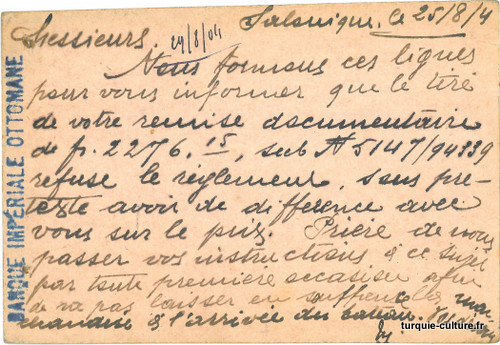 Salonique, le 25/8/4
Messieurs 29/8/04
Nous formons ces lignes
pour vous informer que le tiré
de votre remise documentaire
de fr. 2276.15, sub N 5147/94339
refuse le règlement, sous pré-
texte avoir de difference avec
vous sur le prix. Prière de nous
passer vos instructions à ce sujet
par toute première occasion afin
de ne pas laisser en souffrance la mar
chandise à l'arrivée du bateau.
BANQUE IMPÉRIALE OTTOMANE
turquie-culture.fr